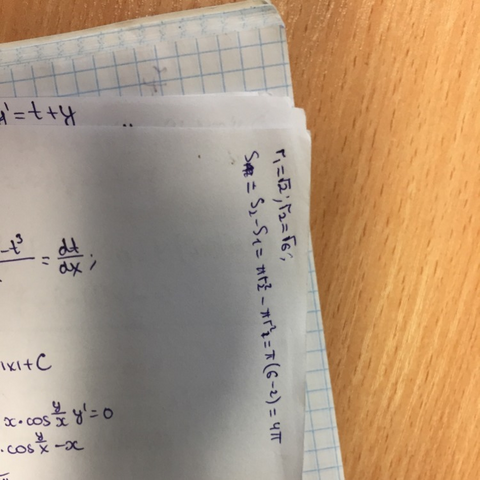 y+t=y'
-t³/ = dt/dx;
|x|+C
x·cos y/x y'=0
·cos y/x -x
r₁=√2; r₂=√6;
S = S₂-S₁ = πr₂² - πr₁² = π(6-2) = 4π